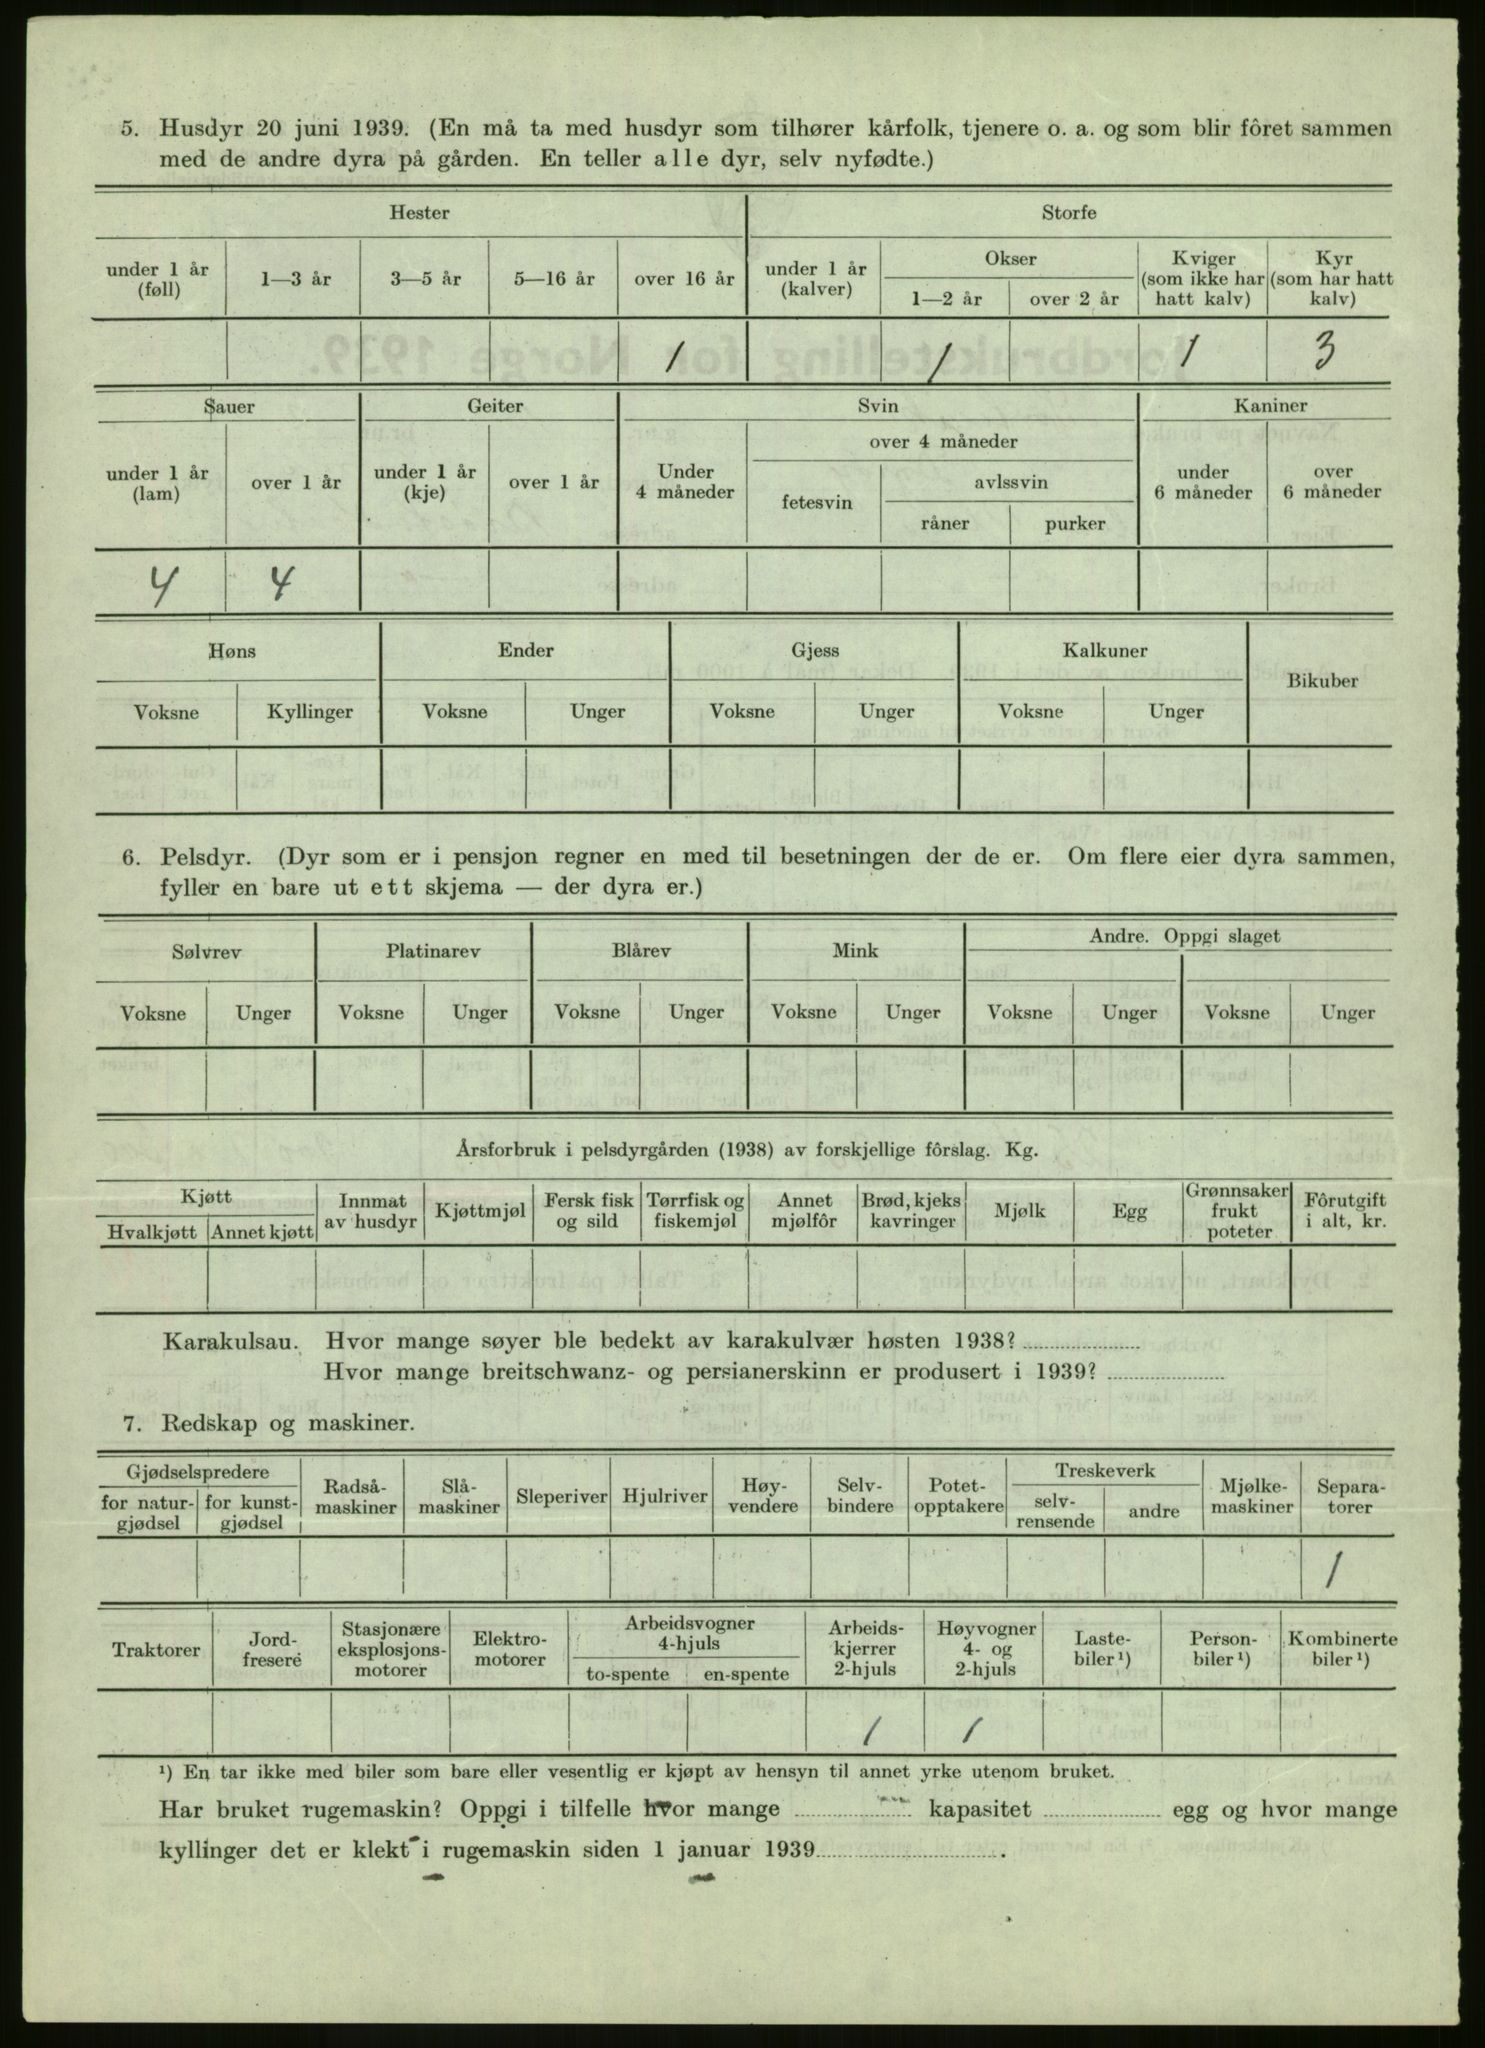 5. Husdyr 20 juni 1939. (En må ta med husdyr som tilhører kårfolk, tjenere o. a. og som blir fôret sammen
med de andre dyra på gården. En teller alle dyr, selv nyfødte.)
Hester Storfe
under 1 år (føll) 1—3 år 3—5 år 5—16 år over 16 år under 1 år (kalver) Okser 1—2 år over 2 år Kviger (som ikke har hatt kalv) Kyr (som har hatt kalv)
1 1 1 3
Sauer Geiter Svin Kaniner
under 1 år (lam) over 1 år under 1 år (kje) over 1 år Under 4 måneder over 4 måneder fetesvin avlssvin råner purker under 6 måneder over 6 måneder
4 4
Høns Ender Gjess Kalkuner Bikuber
Voksne Kyllinger Voksne Unger Voksne Unger Voksne Unger
6. Pelsdyr. (Dyr som er i pensjon regner en med til besetningen der de er. Om flere eier dyra sammen,
fyller en bare ut ett skjema — der dyra er.)
Sølvrev Platinarev Blårev Mink Andre. Oppgi slaget
Voksne Unger Voksne Unger Voksne Unger Voksne Unger Voksne Unger Voksne Unger
Årsforbruk i pelsdyrgården (1938) av forskjellige fôrslag. Kg.
Kjøtt Hvalkjøtt Annet kjøtt Innmat av husdyr Kjøttmjøl Fersk fisk og sild Tørrfisk og fiskemjøl Annet mjølfôr Brød, kjeks kavringer Mjølk Egg Grønnsaker frukt poteter Fôrutgift i alt, kr.
Karakulsau. Hvor mange søyer ble bedekt av karakulvær høsten 1938?
Hvor mange breitschwanz- og persianerskinn er produsert i 1939?
7. Redskap og maskiner.
Gjødselspredere for natur-gjødsel for kunst-gjødsel Radså-maskiner Slå-maskiner Sleperiver Hjulriver Høy-vendere Selv-bindere Potet-opptakere Treskeverk selv-rensende andre Mjølke-maskiner Separa-torer
1
Traktorer Jord-fresere Stasjonære eksplosjons-motorer Elektro-motorer Arbeidsvogner 4-hjuls to-spente en-spente Arbeids-kjerrer 2-hjuls Høyvogner 4- og 2-hjuls Laste-biler ¹) Person-biler ¹) Kombinerte biler ¹)
1 1
¹) En tar ikke med biler som bare eller vesentlig er kjøpt av hensyn til annet yrke utenom bruket.
Har bruket rugemaskin? Oppgi i tilfelle hvor mange kapasitet egg og hvor mange
kyllinger det er klekt i rugemaskin siden 1 januar 1939.